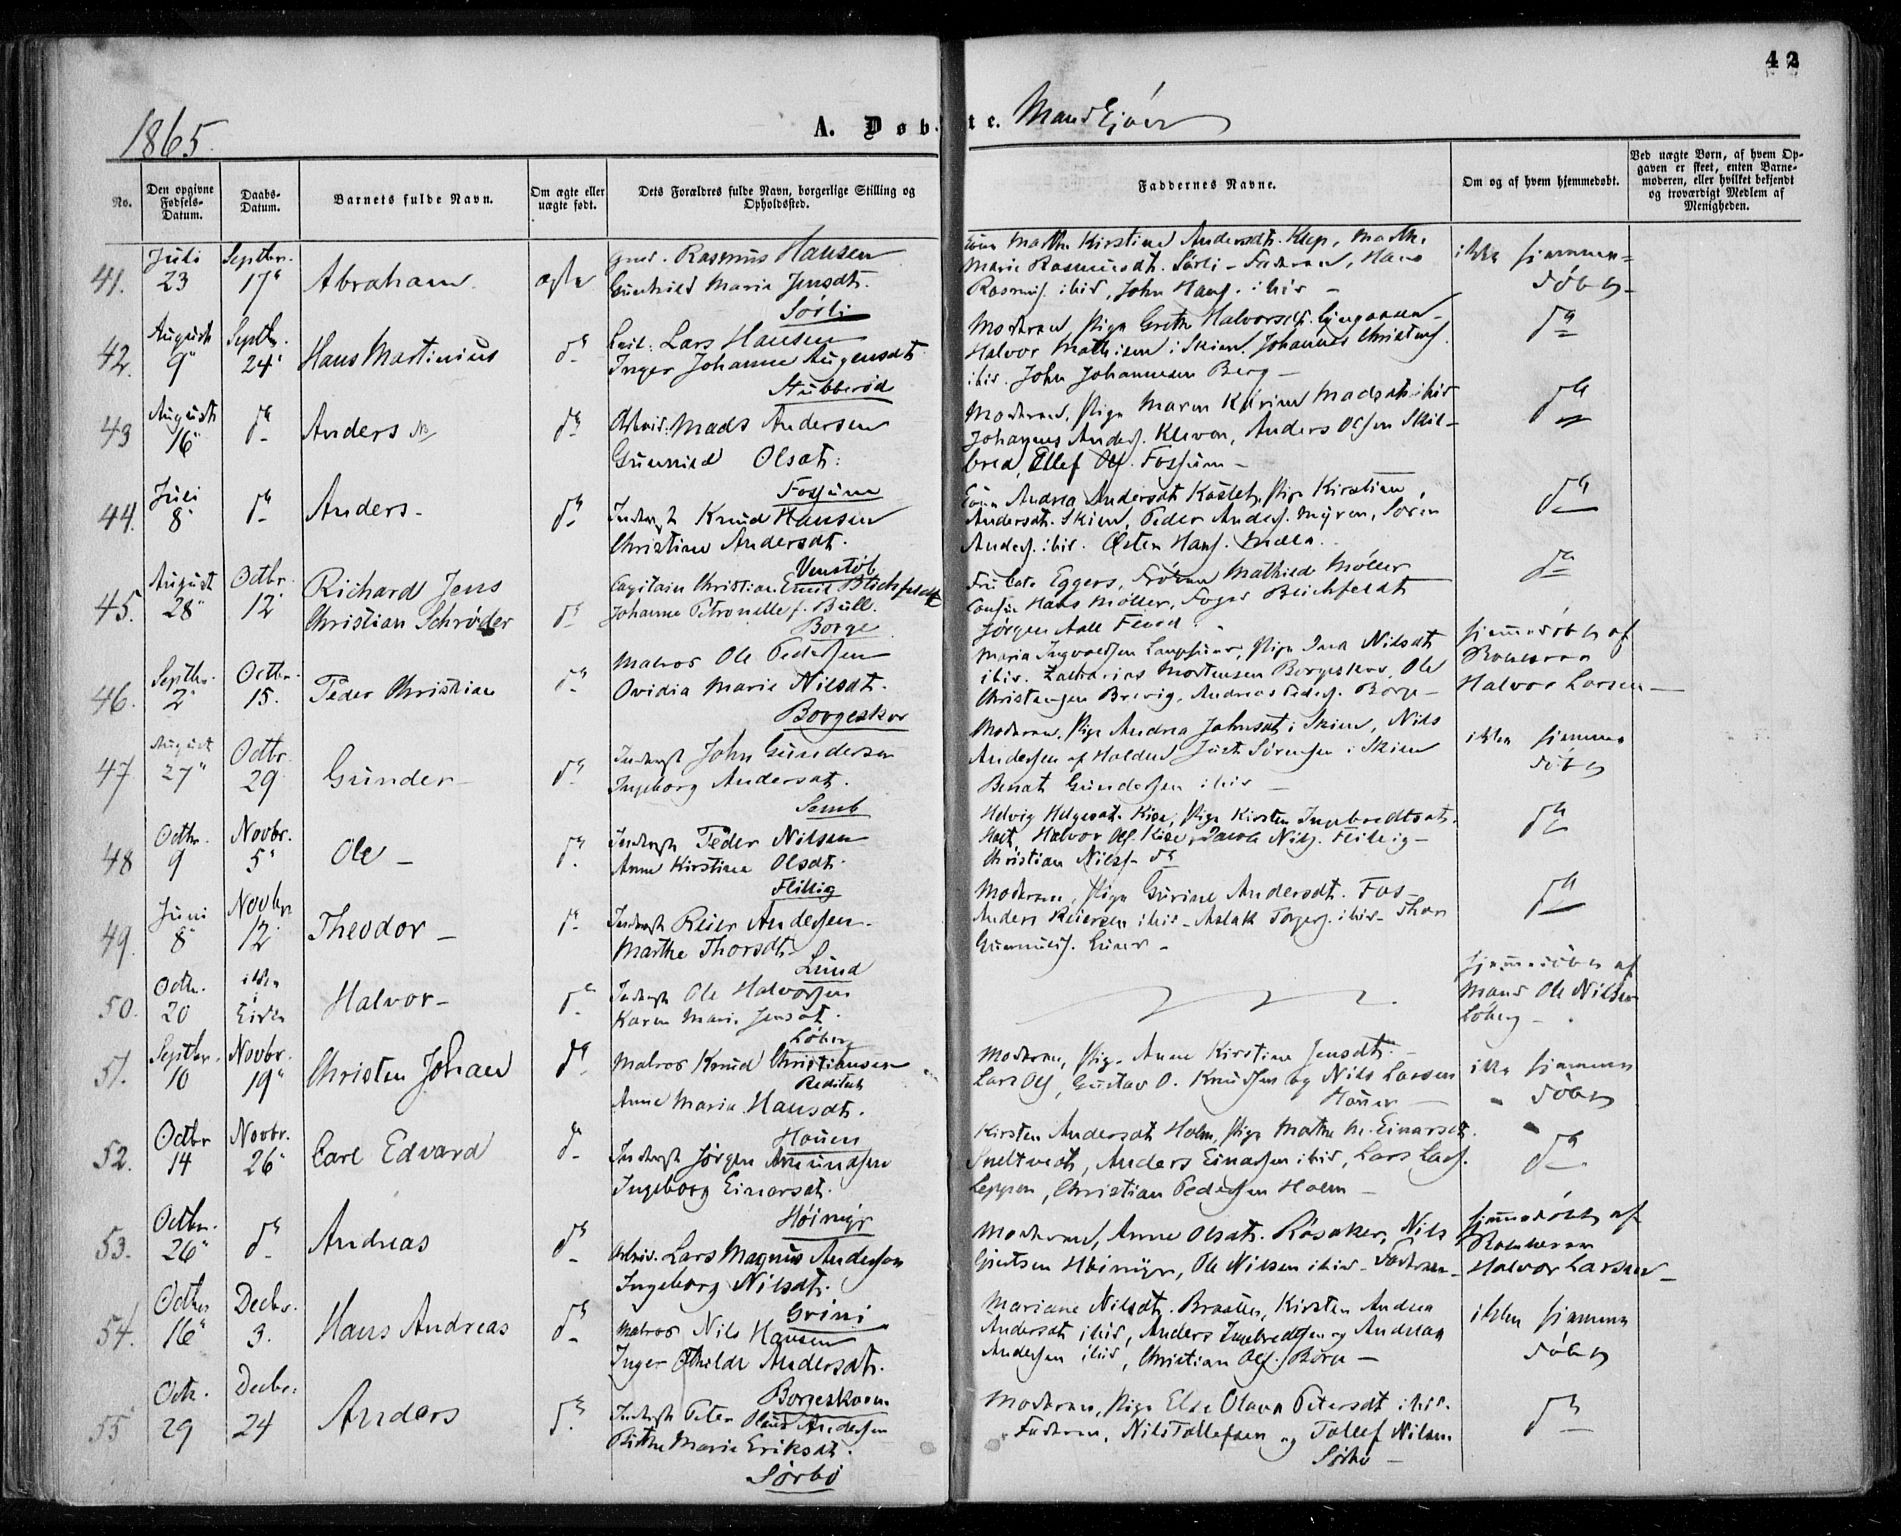 42
1865.
A. Døbte. Mandkjøn
No.
Den opgivne Fødsels-Datum.
Daabs-Datum.
Barnets fulde Navn.
Om ægte eller uægte født.
Dets Forældres fulde Navn, borgerlige Stilling og Opholdssted.
Faddernes Navne.
Om og af hvem hjemmedøbt.
Ved uægte Børn, af hvem Opgaven er skeet, enten Barnemoderen, eller hvilket bekjendt og troværdigt Medlem af Menigheden.
41. Juli 23 Septbr. 17" Abraham ægte
Rasmus Hansen
Gunhild Maria Jensdt.
Sørli
Marthe Kirstine Andersdt. Klep, Marthe
Marie Rasmusdt. Sørli - Faderen, Hans
Rasmus. ibid, John Hans. ibid -
ikke hjemmedøbt
42. August 9" Septbr. 24" Hans Martinius do
Lars Hansen
Inger Johanne Augensdt
Stubberød
Moderen, Pige Grethe Halvorsdt.
Halvor Mathisen i Skien. Johannes Christens.
ibid. John Johannesen Berg -
do
43 August 16" do Anders do
Arbeid. Mads Andersen
Gunhild Olsdt:
Fossum
Moderen, Pige Maren Karine Madsdt ibid
Johannes Anders. Kleven, Anders Olsen Skilbred, Ellef Ols. Fossum -
do
44. Juli 8" do Anders - do
Inderst Knud Hansen
Christine Andersdt.
Venstøb
Andrea Andersdt Kastet, Pige Kirstine
Andersdt. Skien, Peder Anders. Myren, Søren
Anders. ibid. Østen Hans.
do
45. August 28" Octbr. 12 Richard Jens
Christian Schrøder do
Capitain Christian Emil Blichfeldt
Johanne Petronelle f. Bull.
Borge
Eggers, Frøken Mathilde Møller
Hans Møller, Foged Blichfeldt
Jørgen Aall Flood.
do
46. Septbr. 2" Octbr. 15. Peder Christian do
Matros Ole Pedersen
Ovidia Marie Nilsdt.
Borgeskov
Maria Ingvaldsen, Pige Nilsdt
ibid. Zacharias Mortensen Borgeskov, Ole
Christensen Brevig, Andreas Peders. Borge -
hjemmedøbt af
Halvor Larsen
47 August 27" Octbr. 29 Gunder - do
Inderst John Gundersen
Ingeborg Andersdt.
Semb
Moderen, Pige Andrea Johnsdt i Skien, Nils
Andersen af Holden, Sørensen i Skien
Gundersen ibid -
ikke hjemmedøbt
48 Octbr. 9 Novbr. 5" Ole - do
Inderst Peder Nilsen
Anne Kirstine Olsdt.
Flittig
Helvig Helgesdt. Kise, Pige Kirsten Ingebredtsdt.
Halvor Ols. Kise, Jacob Nils. Flittig -
Christian Nils. do
do
49. Juni 8" Novbr 12" Theodor - do
Inderst Reier Andersen.
Marthe Thorsdt.
Lund
Moderen, Pige Gurine Andersdt. Fos -
Anders Reiersen ibid - Aslak Torgers. ibid - Thor
Gunnulfs. Lund -
do
50. Octbr. 20 ikke i Live Halvor - do
Inderst Ole Halvorsen
Karen Marie Jensdt.
Løberg
hjemmedøbt af
Mand Ole Nilsen
Løberg -
51. Septbr. 10 Novbr. 19" Christen Johan do
Matros Knud Christiansen
Anne Maria Hansdt.
Houen
Moderen, Pige Anne Kirstine Jensdt. -
Lars Ols, Gustav O. Knudsen og Nils Larsen
Houen -
ikke hjemmedøbt
52. Octbr 14 Novbr. 26" Carl Edvard do
Inderst Jørgen Amundsen
Ingeborg Einarsdt.
Høimyr
Kirsten Andersdt Holm, Pige Mathe M. Einarsdt.
Sneltvedt, Anders Einarsen ibid, Lars Lars.
Leppen, Christian Pedersen Holm -
do
53. Octbr. 26" do Andreas do
Arbeid. Lars Magnus Andersen
Ingeborg Nilsdt.
Grini
Moderen, Anne Olsdt. Røsaker, Nils
Høimyr, Ole Nilsen ibid - Faderen -
hjemmedøbt af
Halvor Larsen -
54. Octbr 16" Decbr. 3. Hans Andreas do
Matros Nils Hansen
Inger Othilde Andersdt.
Borgeskoven
Mariane Nilsdt. Braaten, Kirsten Andrea
Andersdt ibid, Anders Ingebredtsen og Andreas
Andersen ibid, Christian Ols. Borge -
ikke hjemmedøbt
55 Octr. 29 Decbr. 24 Anders do
Inderst Peter Olaus Andersen
Birthe Marie Eriksdt.
Sørbø
Moderen, Pige Else Olava Petersdt ibid.
Faderen, Nils Tollefsen og Tollef Nilsen
Sørbø -
do